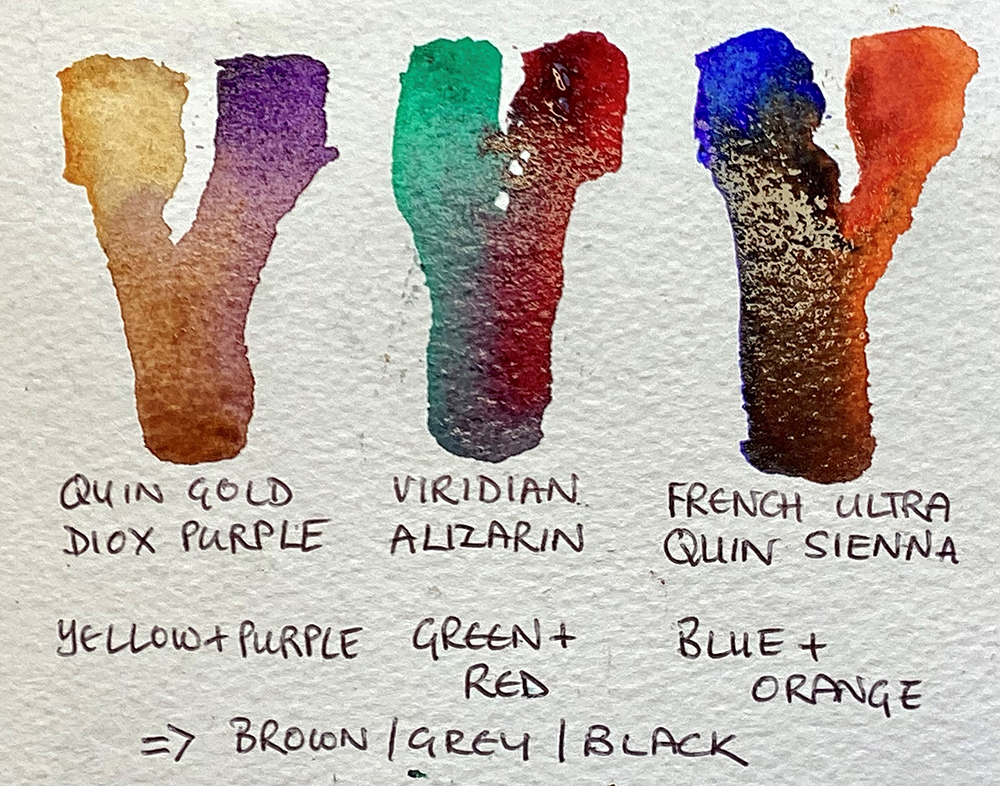 QUIN GOLD
DIOX PURPLE
VIRIDIAN.
ALIZARIN
FRENCH ULTRA
QUIN SIENNA
YELLOW + PURPLE
GREEN +
RED
BLUE +
ORANGE
=> BROWN / GREY / BLACK